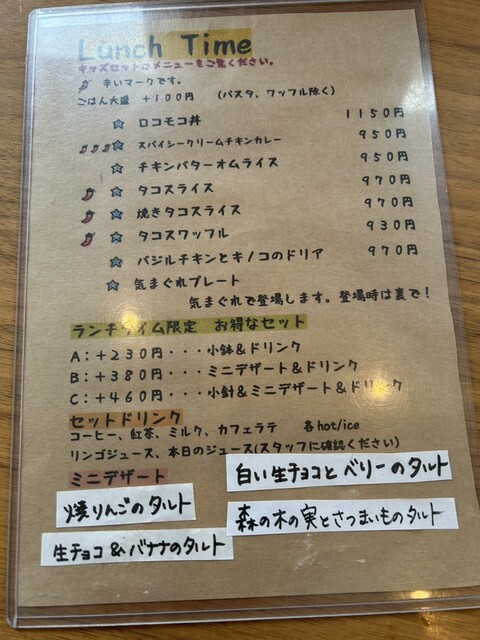 Lunch Time
キッズセットはメニューをご覧ください。
辛いマークです。
ごはん大盛 +100円 (パスタ、ワッフル除く)
☆ ロコモコ丼 1150円
☆ スパイシークリームチキンカレー 950円
☆ チキンバターオムライス 950円
☆ タコスライス 970円
☆ 焼きタコスライス 970円
☆ タコスワッフル 930円
☆ バジルチキンとキノコのドリア 970円
☆ 気まぐれプレート
気まぐれで登場します。登場時は裏で!
ランチタイム限定 お得なセット
A:+230円・・・小鉢&ドリンク
B:+380円・・・ミニデザート&ドリンク
C:+460円・・・小針&ミニデザート&ドリンク
セットドリンク
コーヒー、紅茶、ミルク、カフェラテ 各hot/ice
リンゴジュース、本日のジュース(スタッフに確認ください)
ミニデザート
白い生チョコとベリーのタルト
焼りんごのタルト
森の木の実とさつまいものタルト
生チョコ&バナナのタルト